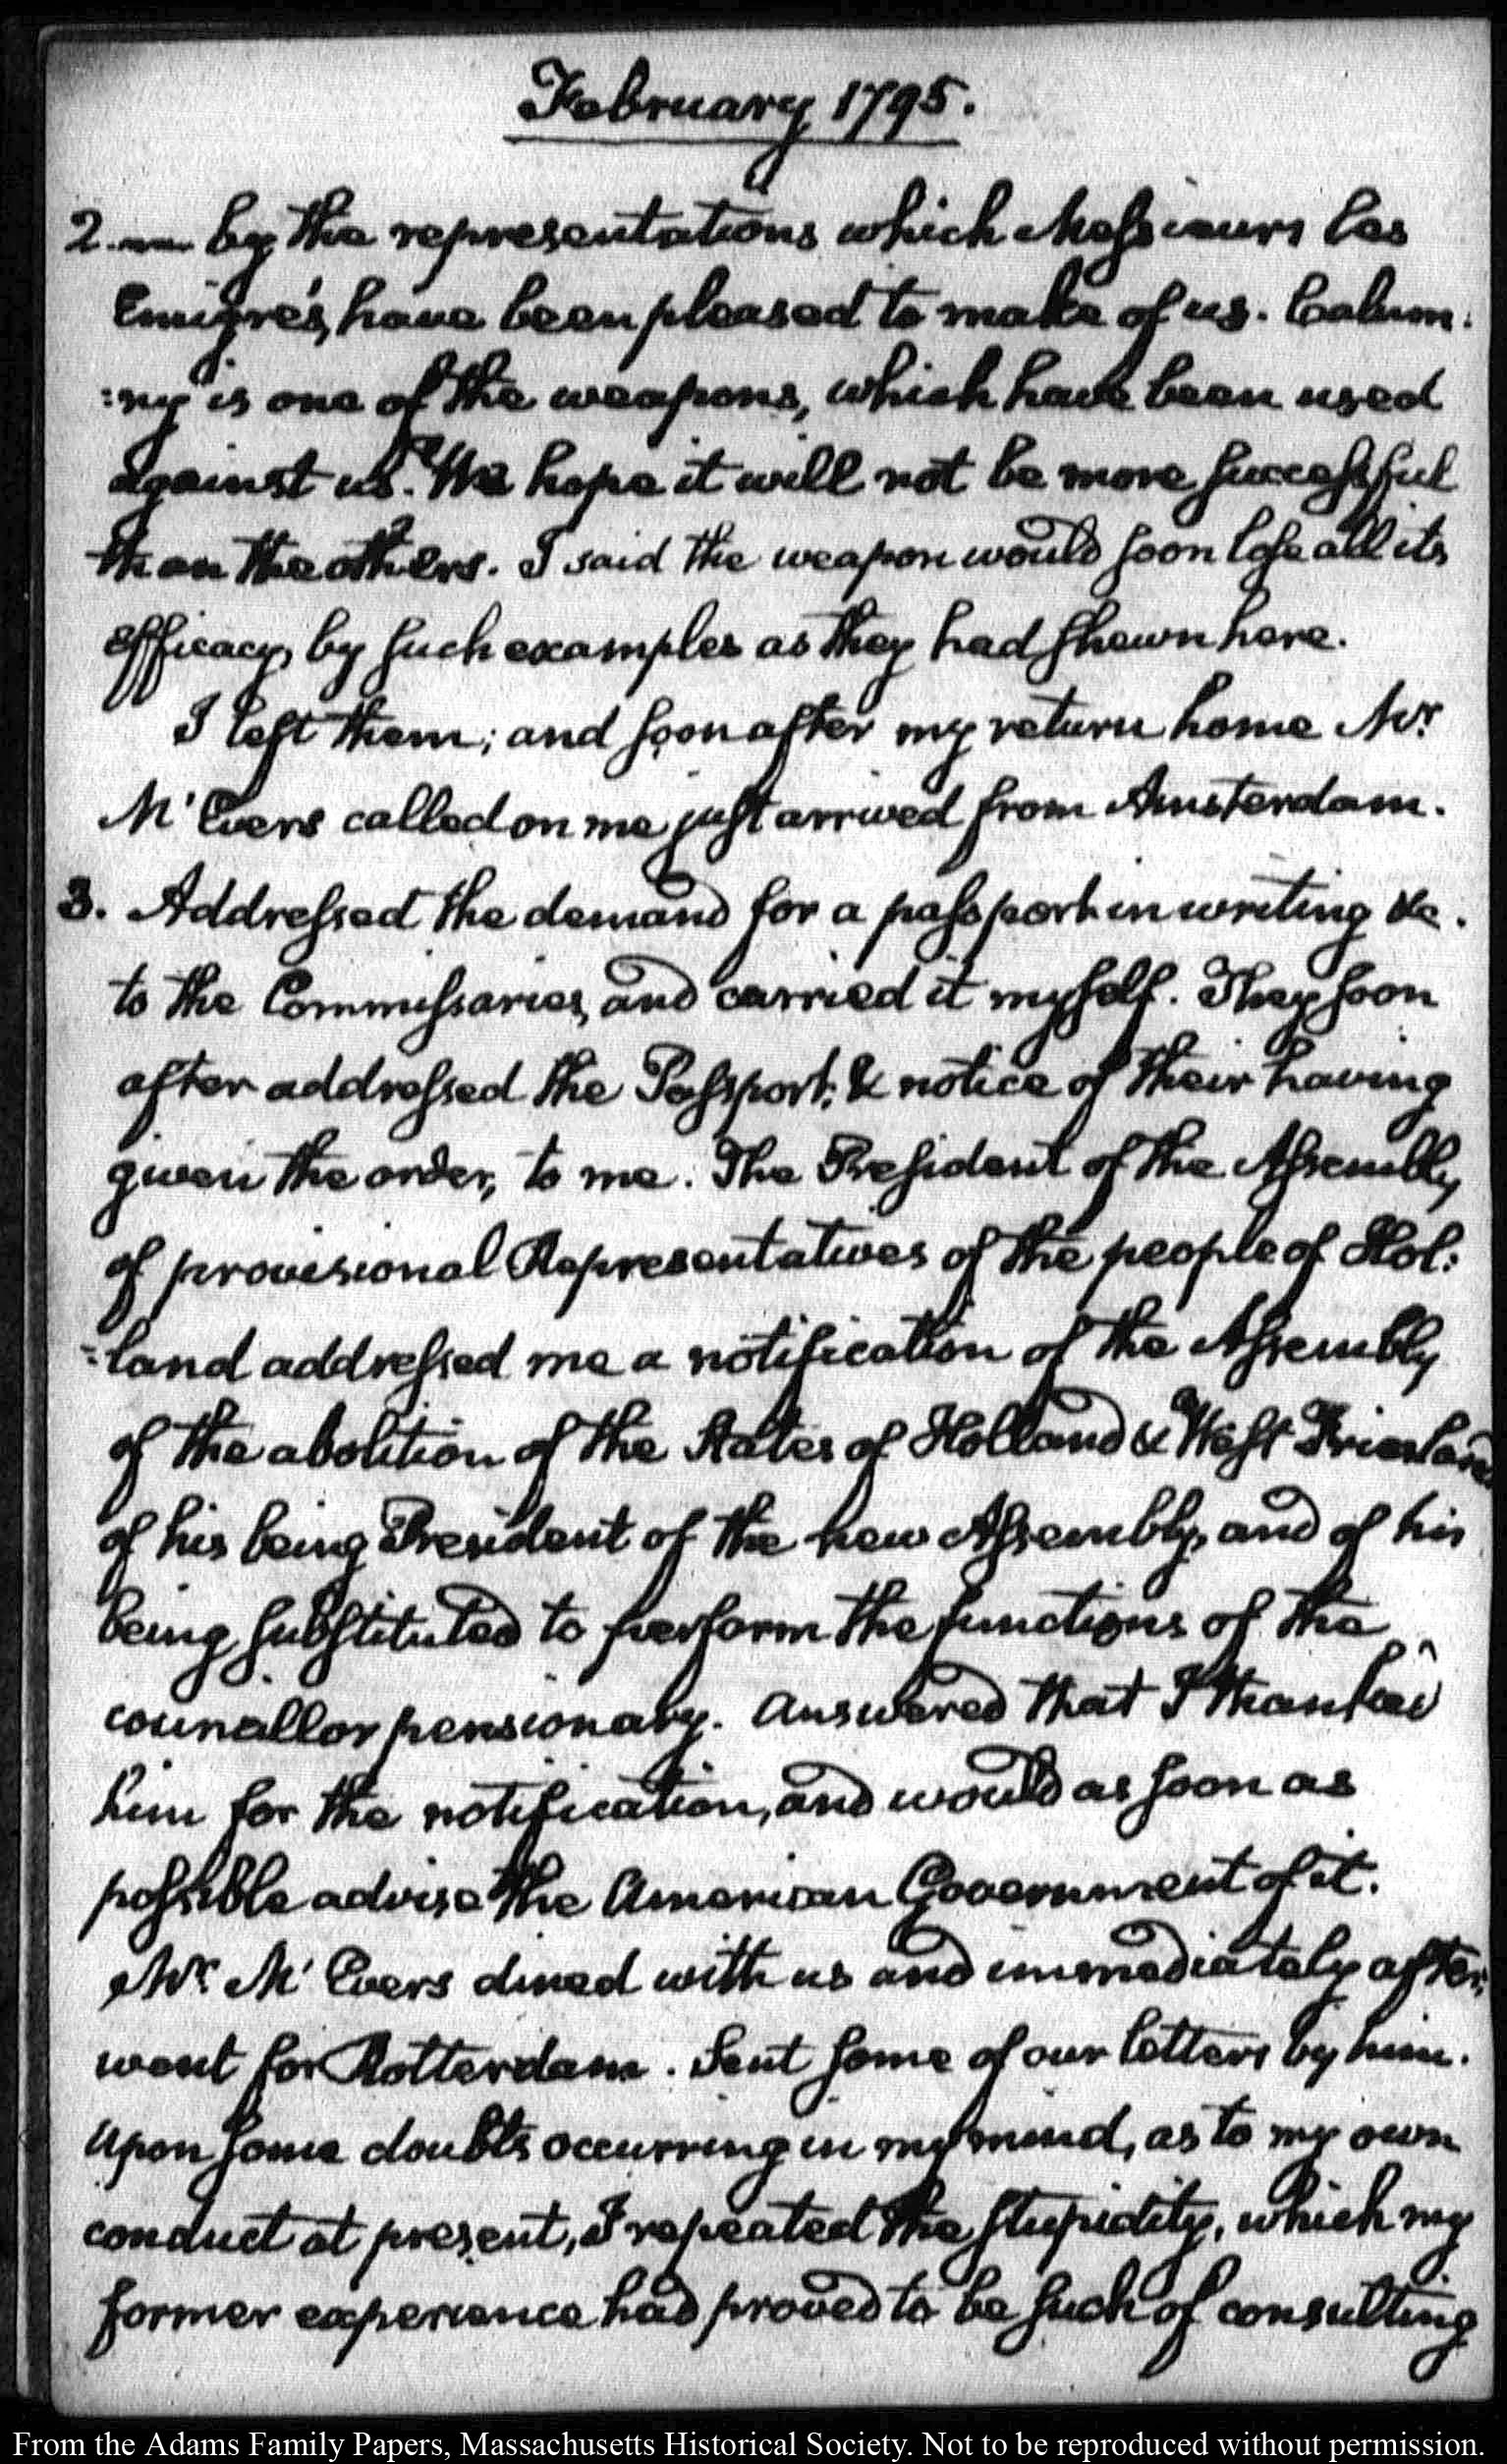 February 1795.
2. by the representations which Messieurs les
Emigrés, have been pleased to make of us. Calum:
:ny is one of the weapons, which have been used
against us. We hope it will not be more successful
than the others. I said the weapon would soon lose all its
efficacy, by such examples as they had shewn here.
I left them; and soon after my return home Mr.
M'Evers called on me just arrived from Amsterdam.
3. Addressed the demand for a passport in writing &c.
to the Commissaries, and carried it myself. They soon
after addressed the Passport, & notice of their having
given the order, to me. The President of the Assembly
of provisional Representatives of the people of Hol:
:land addressed me a notification of the Assembly
of the abolition of the States of Holland & West Friesland
of his being President of the new Assembly, and of his
being substituted to perform the functions of the
counallor pensionary. Answered that I thanked
him for the notification, and would as soon as
possible advise the American Government of it.
Mr. M'Evers dined with us and immediately after,
went for Rotterdam. Sent some of our letters by him.
Upon some doubts occurring in my mind, as to my own
conduct at present, I repeated the stupidity, which my
former experience had proved to be such of consulting
From the Adams Family Papers, Massachusetts Historical Society. Not to be reproduced without permission.